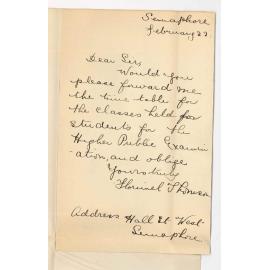 Semaphore
February 27
Dear Sir,
Would you
please forward me
the time table for
the classes held for
students for the
Higher Public Examin
ation, and oblige
Yours truly
Address Hall St West
Semaphore